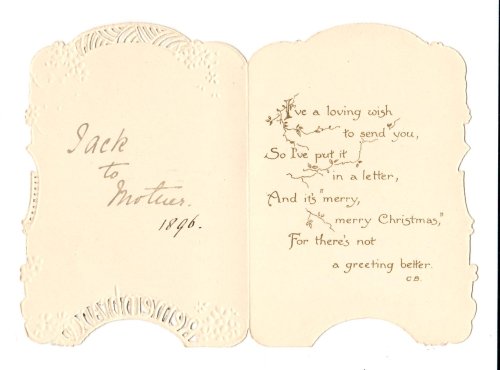 Jack
to
Mother.
1896.
I've a loving wish
to send you,
So I've put it
in a letter,
And it's "merry,
merry Christmas,"
For there's not
a greeting better.
C.B.